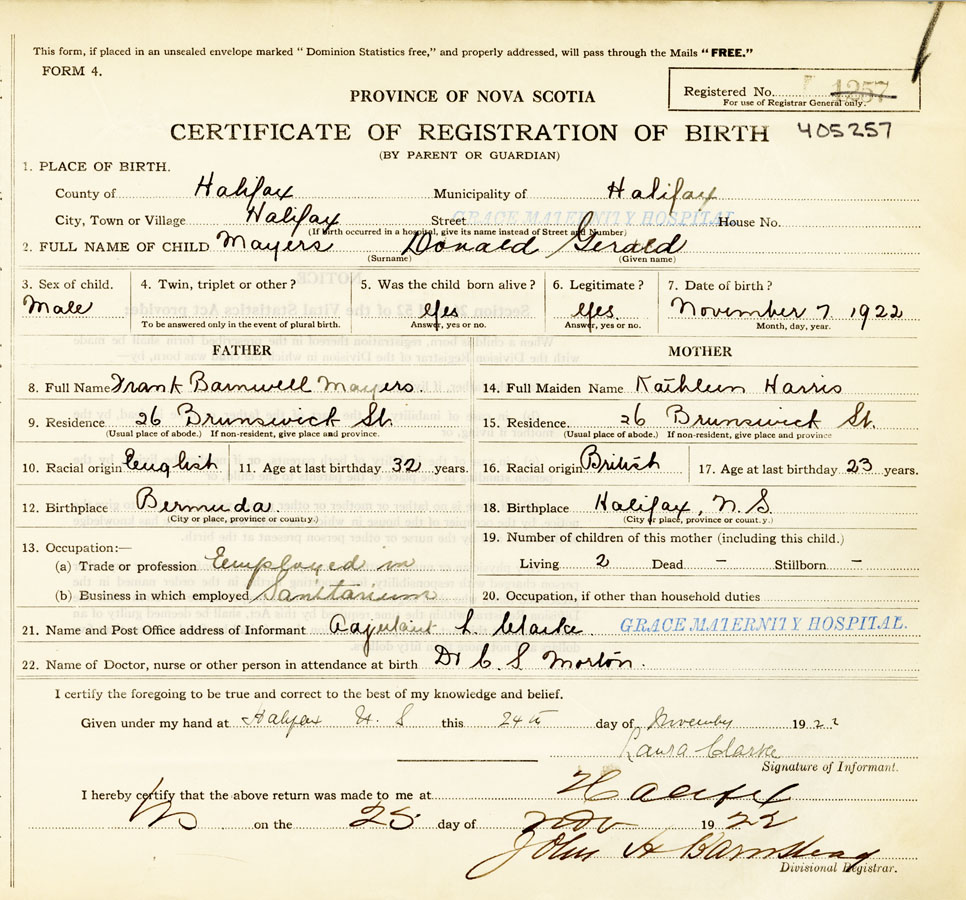 This form, if placed in an unsealed envelope marked " Dominion Statistics free," and properly addressed, will pass through the Mails "FREE."
FORM 4.
Registered No. 1257
For use of Registrar General only.
PROVINCE OF NOVA SCOTIA
CERTIFICATE OF REGISTRATION OF BIRTH 405257
(BY PARENT OR GUARDIAN)
1. PLACE OF BIRTH.
County of Halifax Municipality of Halifax
City, Town or Village Halifax Street GRACE MATERNITY HOSPITAL House No.
(If birth occurred in a hospital, give its name instead of Street and Number)
2. FULL NAME OF CHILD Mayers Donald Gerald
(Surname) (Given name)
3. Sex of child. 4. Twin, triplet or other? 5. Was the child born alive? 6. Legitimate? 7. Date of birth?
Male Yes Yes. November 7. 1922
To be answered only in the event of plural birth. Answer, yes or no. Answer, yes or no. Month, day, year.
FATHER MOTHER
8. Full Name Frank Barnwell Mayers. 14. Full Maiden Name Kathleen Harris
9. Residence 26 Brunswick St. 15. Residence. 26 Brunswick St.
(Usual place of abode.) If non-resident, give place and province. (Usual place of abode.) If non-resident, give place and province
10. Racial origin English 11. Age at last birthday 32 years. 16. Racial origin British 17. Age at last birthday 23 years.
12. Birthplace Bermuda. 18. Birthplace Halifax, N. S.
(City or place, province or country.) (City or place, province or count.y.)
13. Occupation:— 19. Number of children of this mother (including this child.)
(a) Trade or profession Employed in Living 2 Dead – Stillborn –
(b) Business in which employed Sanitarium 20. Occupation, if other than household duties
21. Name and Post Office address of Informant Adjutant L. Clarke. GRACE MATERNITY HOSPITAL.
22. Name of Doctor, nurse or other person in attendance at birth Dr C. S. Morton.
I certify the foregoing to be true and correct to the best of my knowledge and belief.
Given under my hand at Halifax N. S this 24th day of November 1922
Laura Clarke
Signature of Informant.
I hereby certify that the above return was made to me at Halifax
NS on the 25 day of Nov 1922
John A Barnstead
Divisional Registrar.